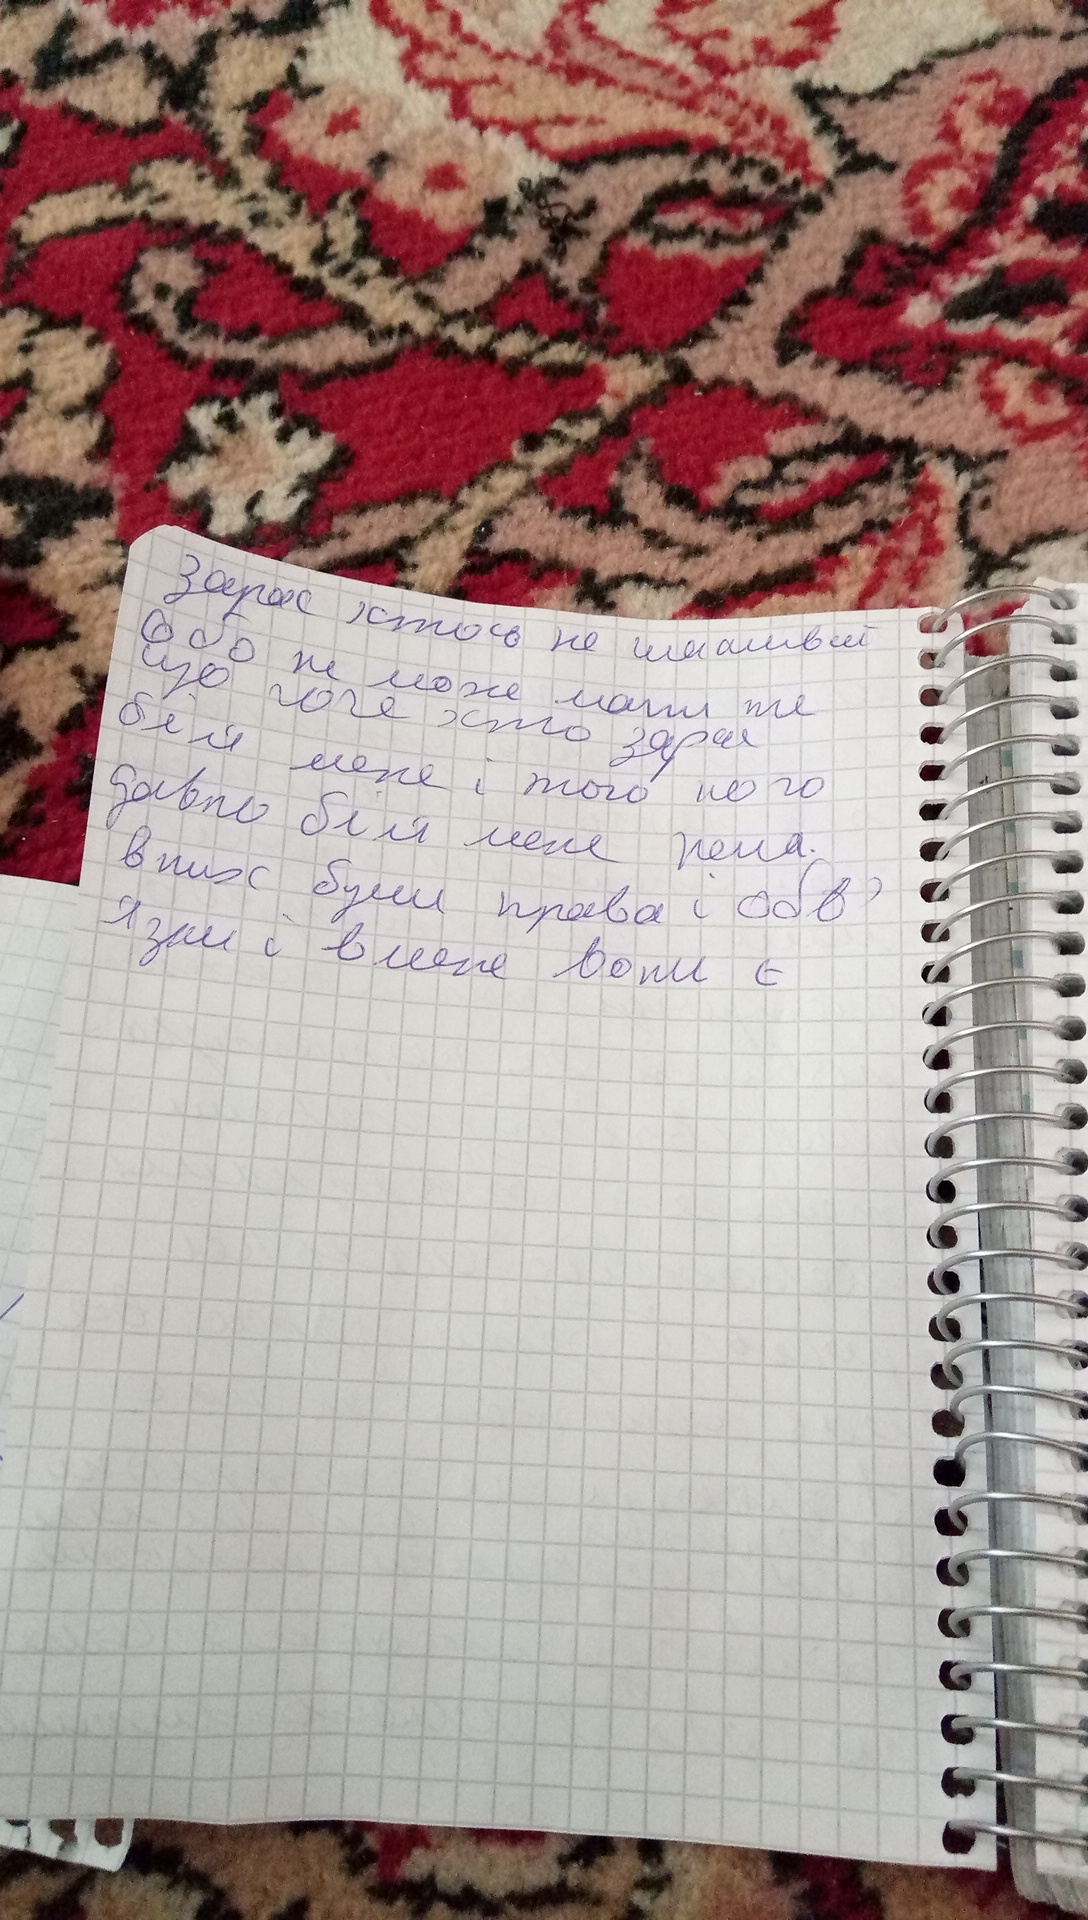 зараз хтось не щасливий
або не може мати те
що хоче хто зараз
біля мене і того кого
давно біля мене нема.
в них були права і обв'
язки і в мене вони є